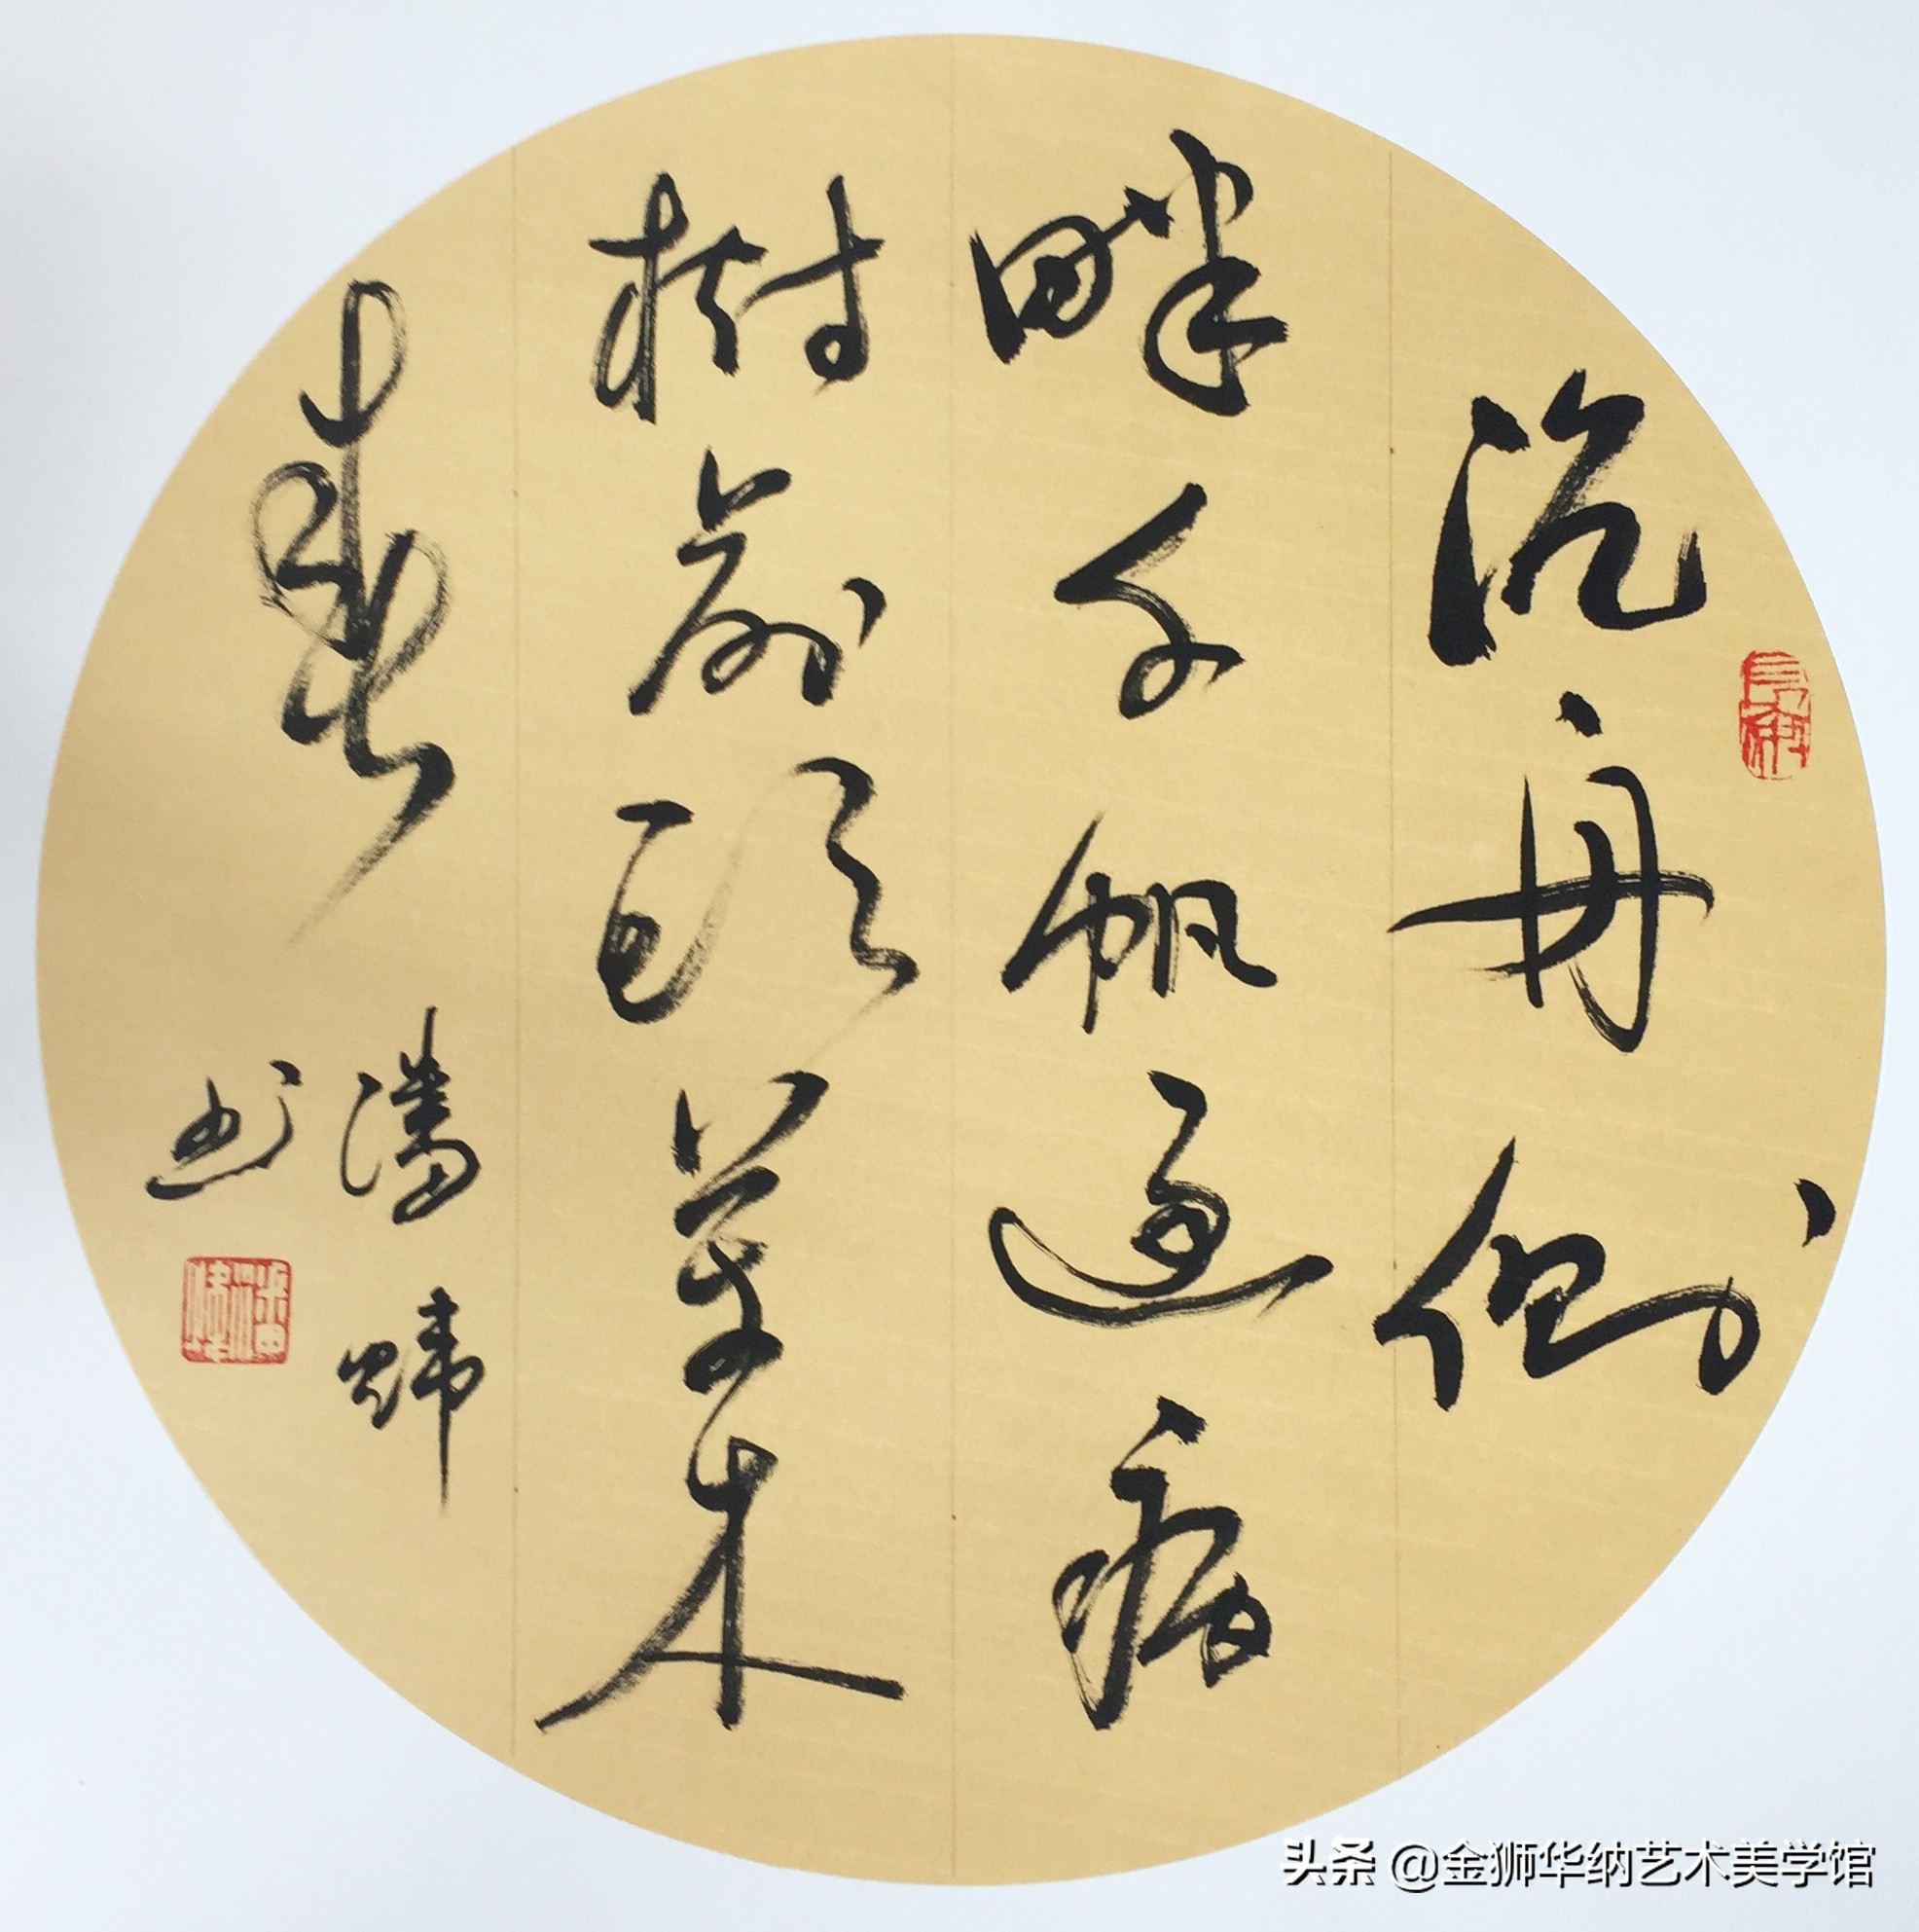 沉舟侧
畔千帆过病
树前头万木
春
潘炜
书
头条 @金狮华纳艺术美学馆